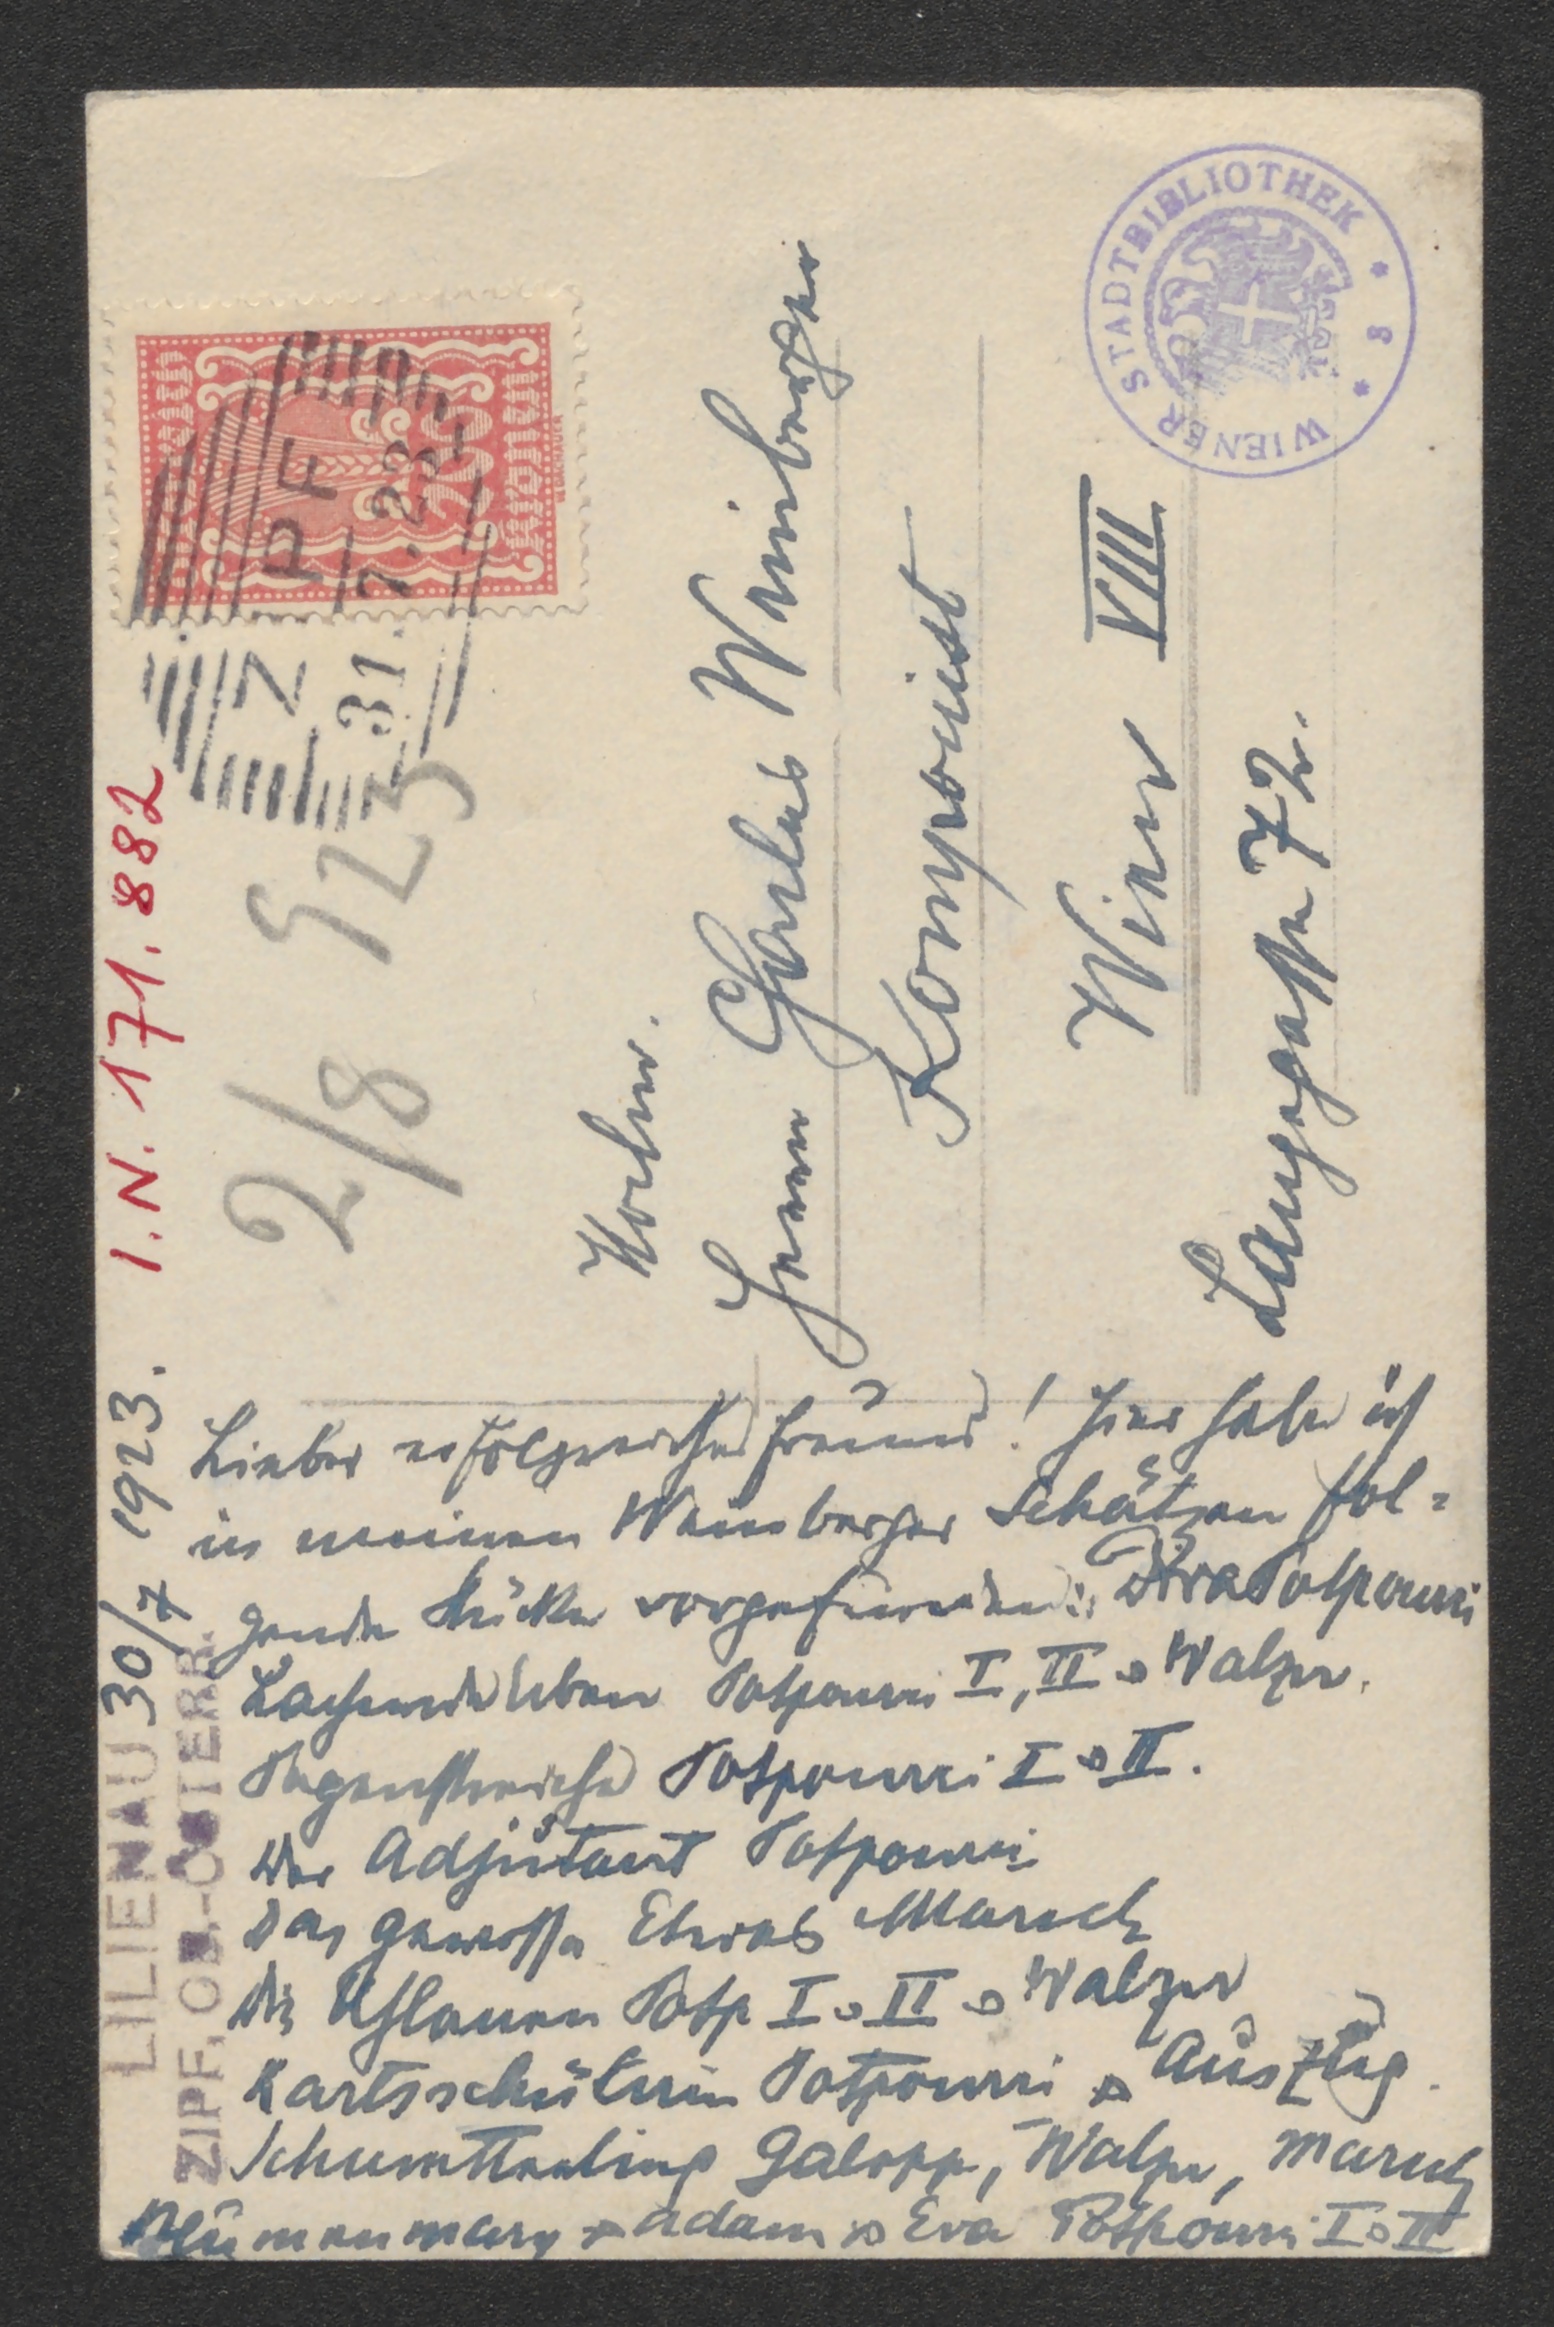 I. N. 171.882
WIENER STADTBIBLIOTHEK * 8 *
200
Kronen
ZIPF
31. 7. 23
2/8 923
Hochw.
Herrn Charles Weinberger
Komponist
Wien VIII
Langegasse 72.
LILIENAU 30/7 1923.
ZIPF, OB.-ÖSTERR.
Lieber erfolgreicher Freund! Hier habe ich
in meinen Weinberger Schätzen fol=
gende Stücke vorgefunden: Diva Potpourri
Lachende Erben Potpourri I, II & Walzer.
Pagenstreiche Potpourri I & II.
Der Adjutant Potpourri
Das gewisse Etwas Marsch
Die Uhlanen Potp I & II & Walzer
Karlsschülerin Potpourri & Auszug.
Schmetterling Galopp, Walzer, Marsch
Blumenmary & Adam & Eva Potpourri I & II